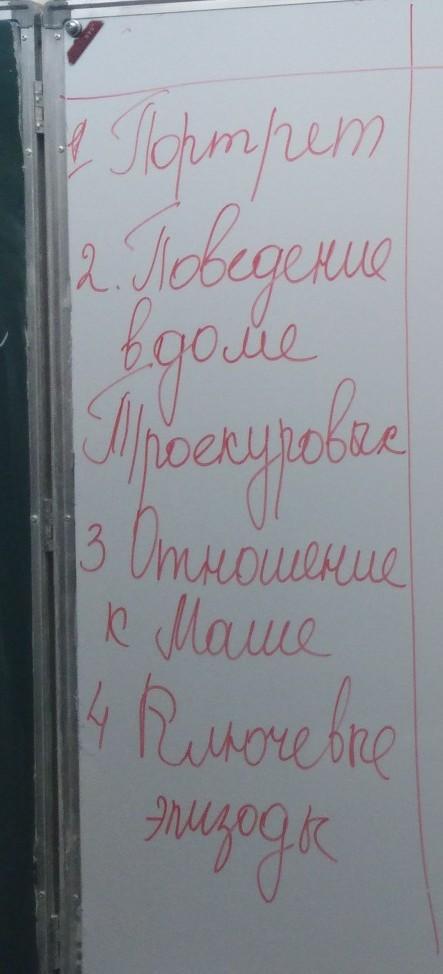 1 Портрет
2. Поведение
в доме
Троекуровых
3 Отношение
к Маше
4 Ключевые
эпизоды